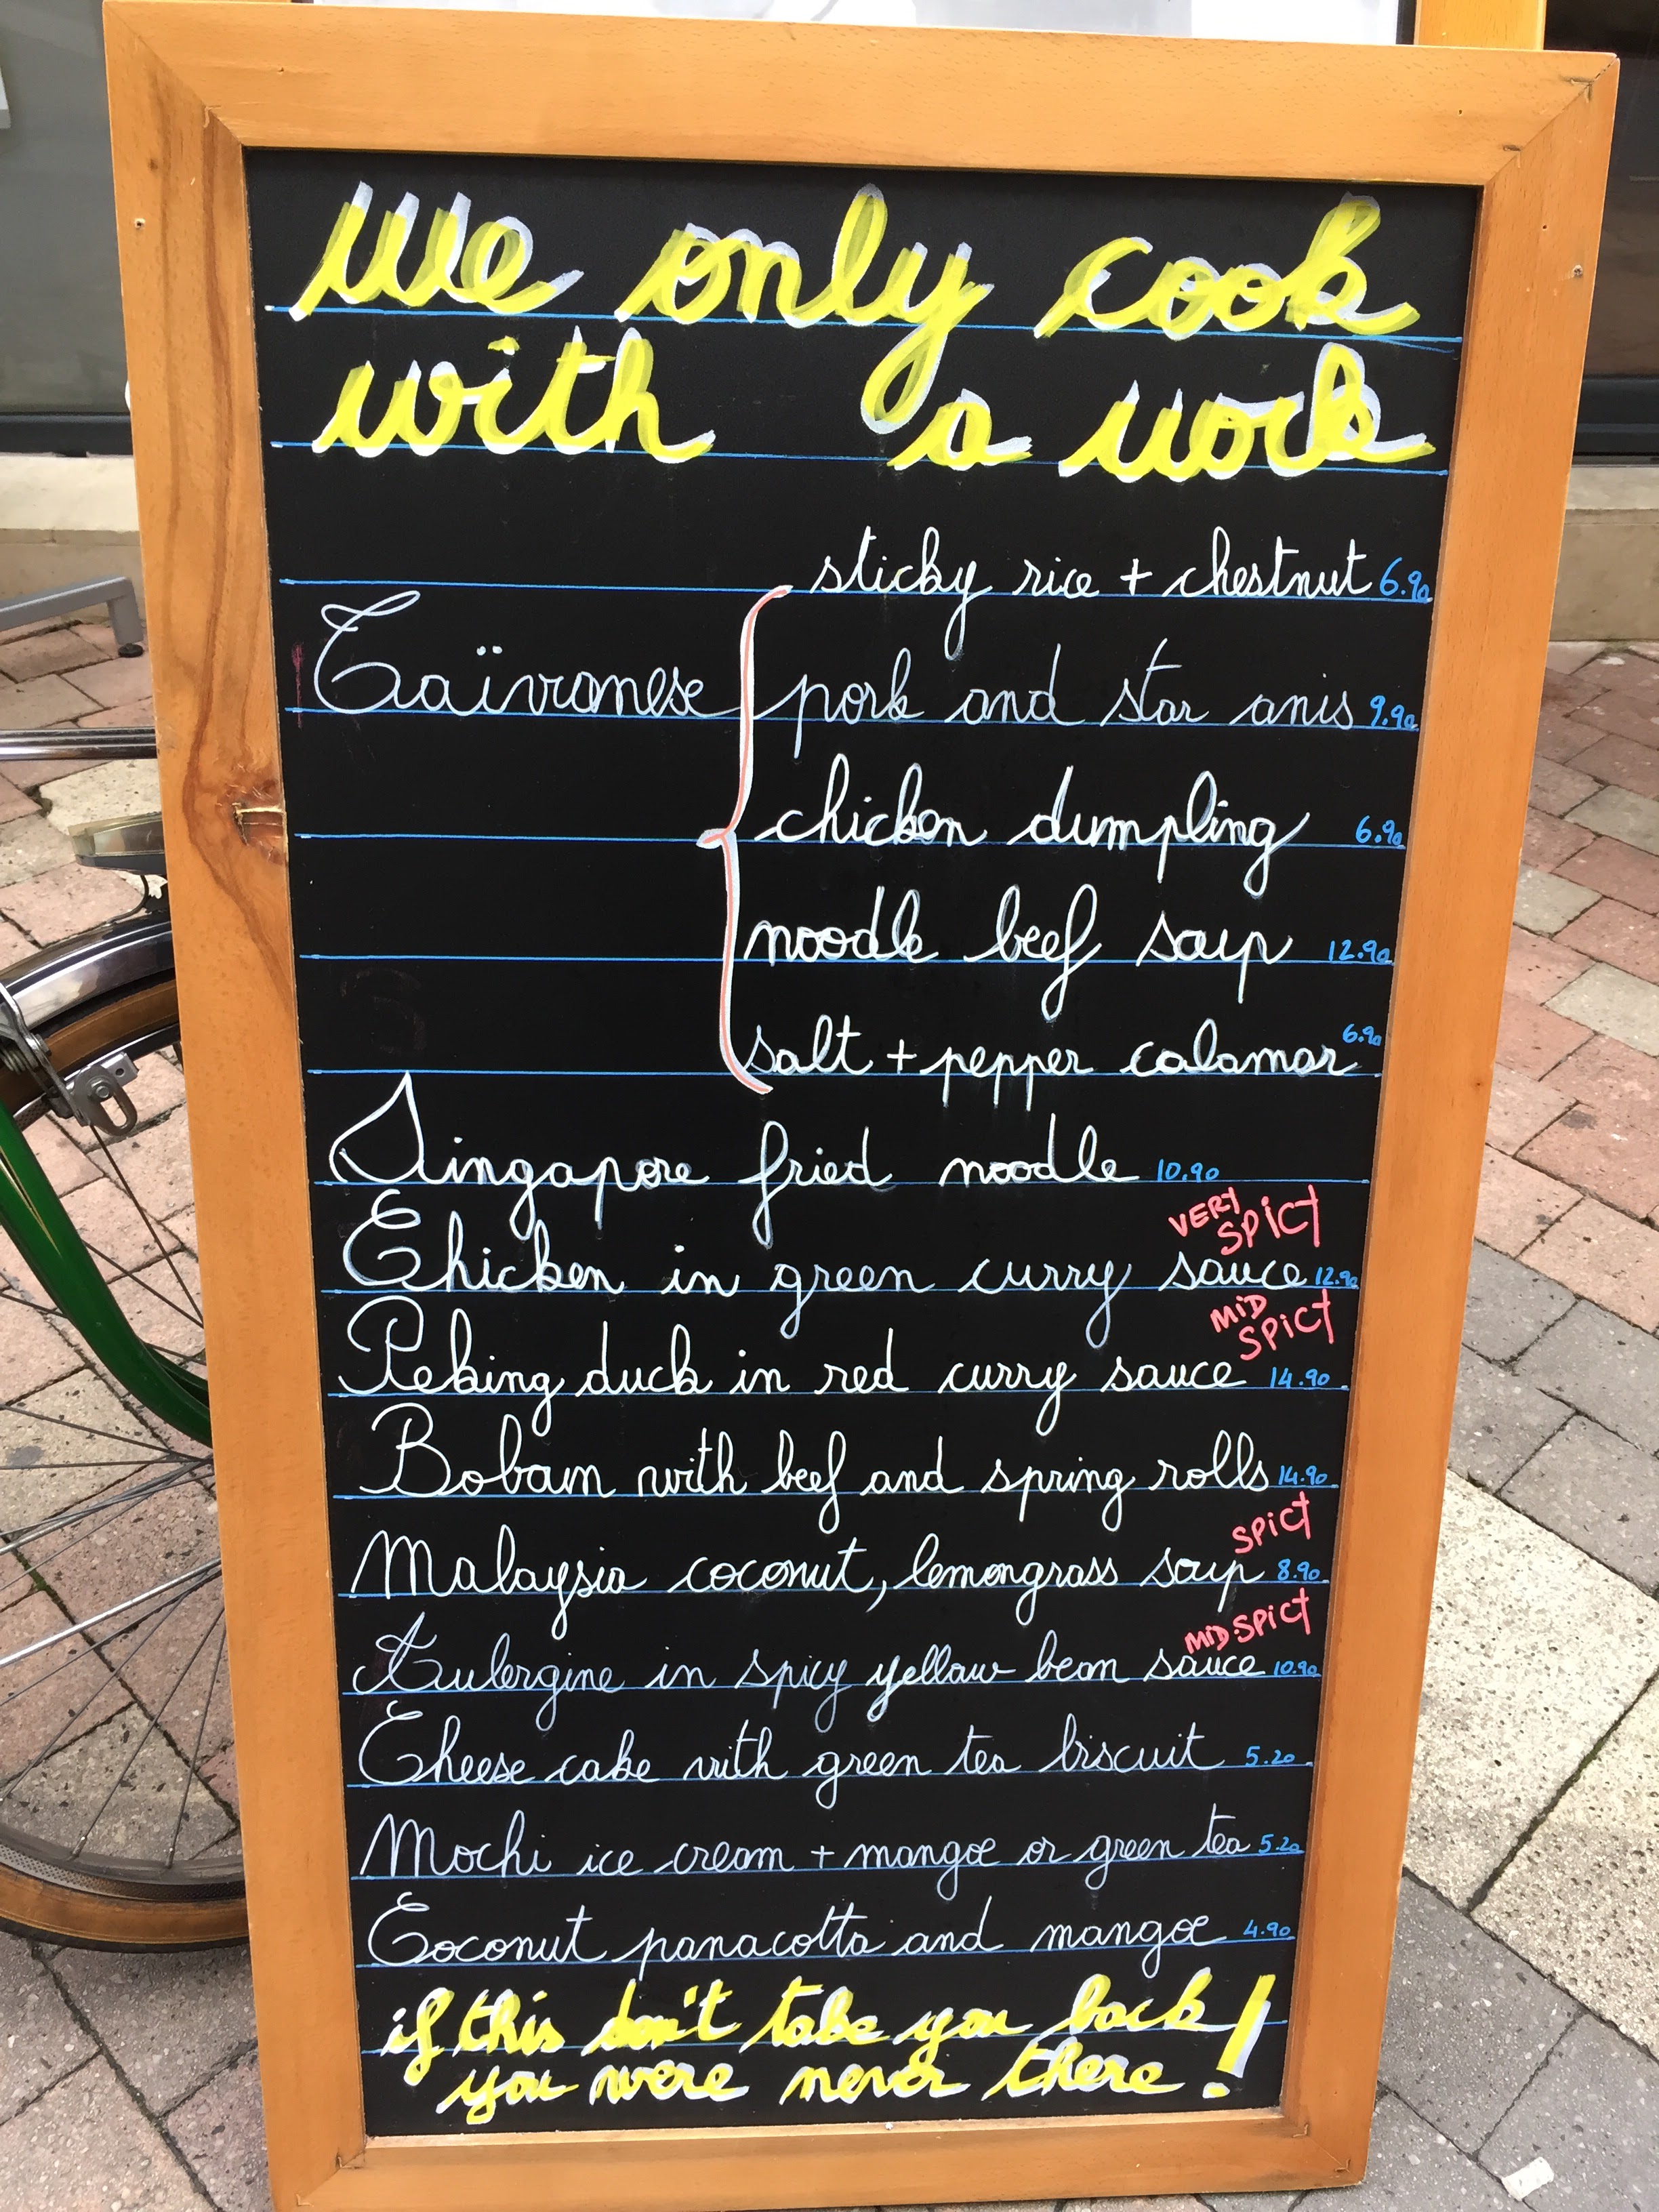 We only cook
with a work
sticky rice + chestnut 6.90
Taïwanese pork and star anis 9.90
chicken dumpling 6.90
noodle beef soup 12.90
salt + pepper calamar 6.90
Singapore fried noodle 10.90
VERY SPICY
Chicken in green curry sauce 12.90
MiD SPiCY
Peking duck in red curry sauce 14.90
Bobam with beef and spring rolls 14.90
SPiCY
Malaysia coconut, lemongrass soup 8.90
MiD.SPiCY
Aubergine in spicy yellow bean sauce 10.90
Cheese cake with green tea biscuit 5.20
Mochi ice cream + mangoe or green tea 5.20
Coconut panacotta and mangoe 4.90
if this don't take you back
you were never there!